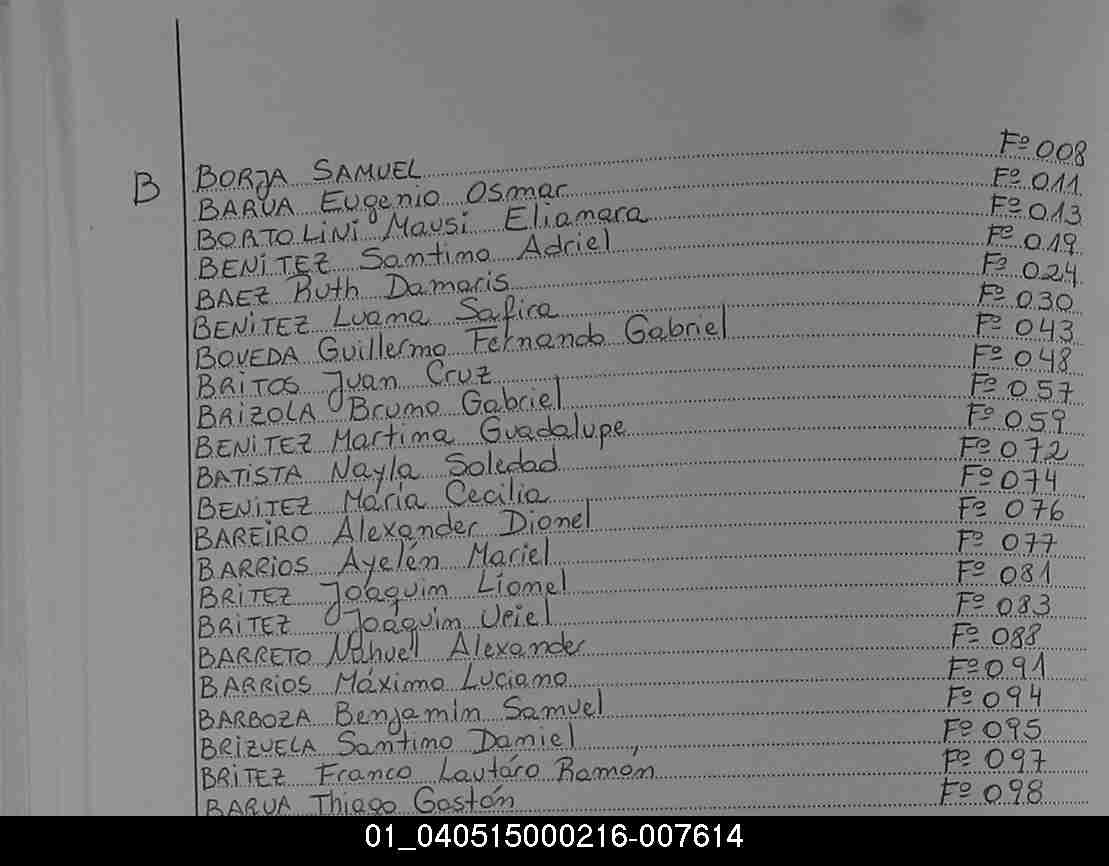 B BORJA SAMUEL Fº 008
BARUA Eugenio Osmar Fº 011
BORTOLINI Mausi Eliamara Fº 013
BENITEZ Santino Adriel Fº 019
BAEZ Ruth Damaris Fº 024
BENITEZ Luana Safira Fº 030
BOVEDA Guillermo Fernando Gabriel Fº 043
BRITOS Juan Cruz Fº 048
BRIZOLA Bruno Gabriel Fº 057
BENITEZ Martina Guadalupe Fº 059
BATISTA Nayla Soledad Fº 072
BENITEZ María Cecilia Fº 074
BAREIRO Alexander Dionel Fº 076
BARRIOS Ayelén Mariel Fº 077
BRITEZ Joaquin Lionel Fº 081
BRITEZ Joaquin Uriel Fº 083
BARRETO Nahuel Alexander Fº 088
BARRIOS Máximo Luciano Fº 091
BARBOZA Benjamín Samuel Fº 094
BRIZUELA Santino Daniel Fº 095
BRITEZ Franco Lautaro Ramón Fº 097
BARUA Thiago Gastón Fº 098
01_040515000216-007614